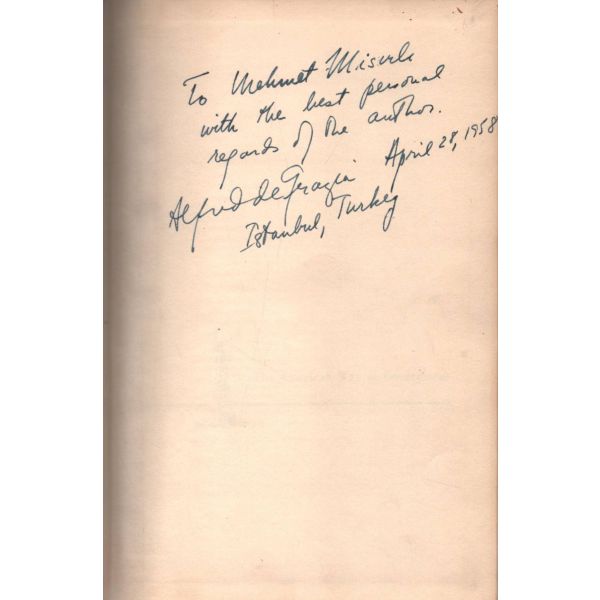 To Mehmet Misirli
with the best personal
regards of the author.
Alfred de Grazia April 28, 1958
Istanbul, Turkey